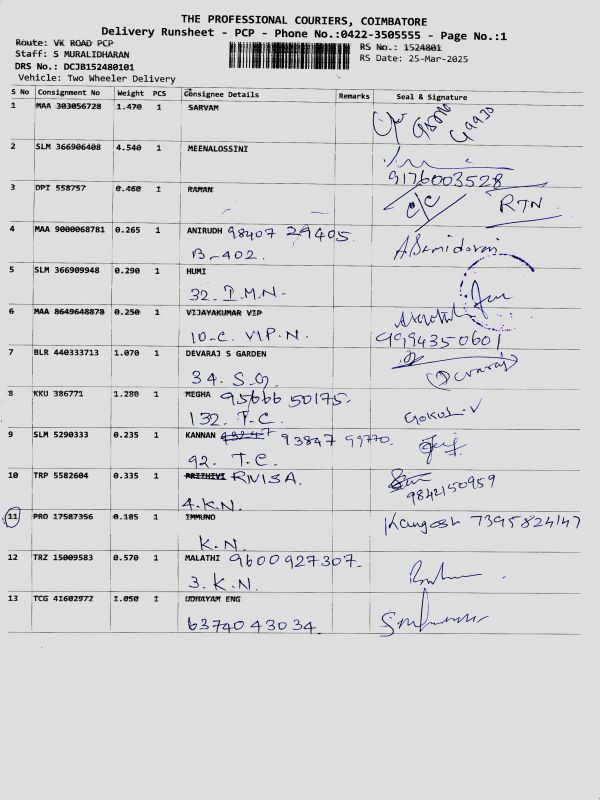 THE PROFESSIONAL COURIERS, COIMBATORE
Delivery Runsheet - PCP - Phone No.:0422-3505555 - Page No.:1
Route: VK ROAD PCP
RS No.: 1524801
Staff: S MURALIDHARAN
RS Date: 25-Mar-2025
DRS No.: DCJB152480101
Vehicle: Two Wheeler Delivery
S No Consignment No Weight PCS Consignee Details Remarks Seal & Signature
1 MAA 303056728 1.470 1 SARVAM
2 SLM 366906408 4.540 1 MEENALOSSINI
9176003528
3 DPI 558757 0.460 1 RAMAN
C/C RTN
4 MAA 9000068781 0.265 1 ANIRUDH 98407 29405
B-402.
5 SLM 366909948 0.290 1 HUMI
32. I.M.N.
6 MAA 8649648878 0.250 1 VIJAYAKUMAR VIP
10-C. VIP.N. 9994350601
7 BLR 440333713 1.070 1 DEVARAJ S GARDEN
34. S.G. Devaraj
8 KKU 386771 1.280 1 MEGHA 95666 50175.
132. T.C. Gokul.V
9 SLM 5290333 0.235 1 KANNAN 93847 99770.
92. T.C.
10 TRP 5582604 0.335 1 PRITHIVI RIVISA.
4.K.N. 9842150959
11 PRO 17587356 0.185 1 IMMUNO 7395824147
K.N.
12 TRZ 15009583 0.570 1 MALATHI 9600927307.
3. K.N.
13 TCG 41602972 1.050 1 UDHAYAM ENG
63740 43034.